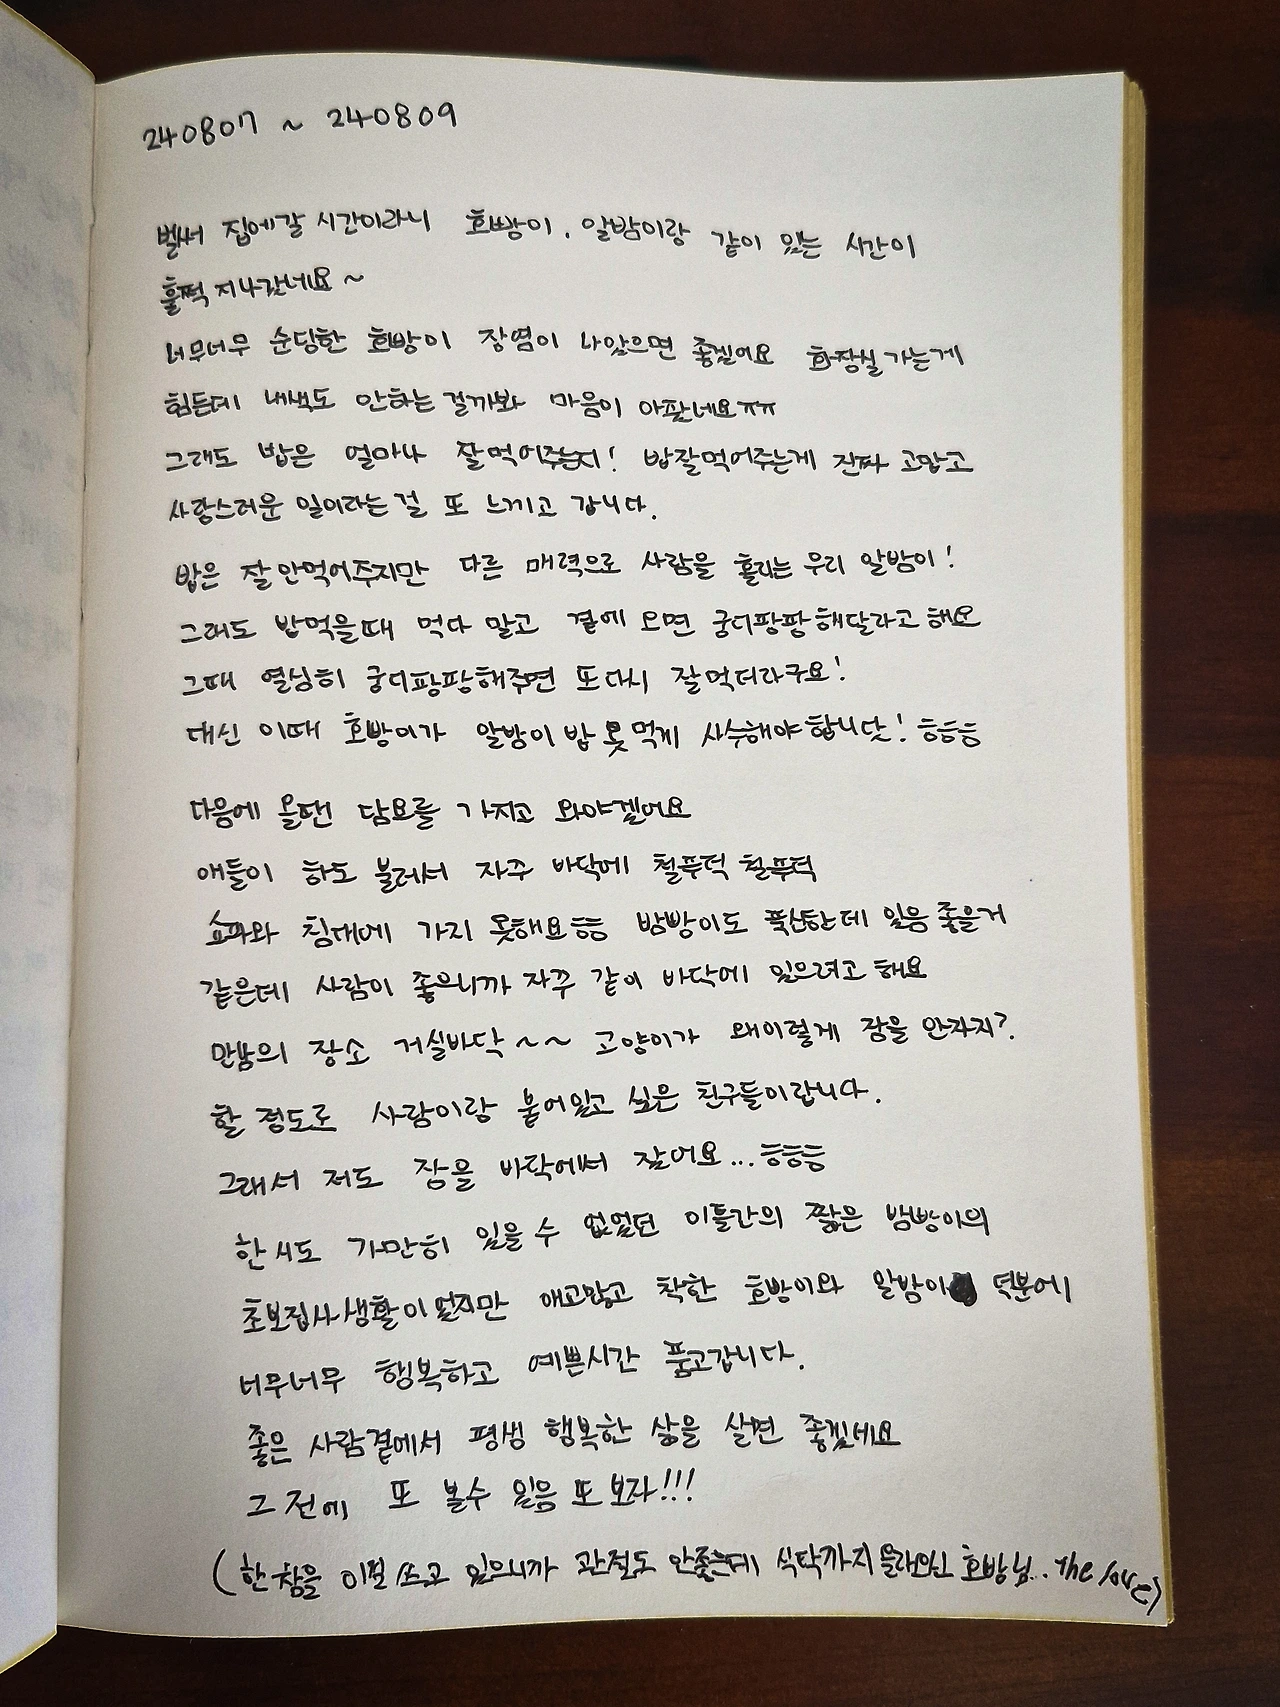 240807 ~ 240809
벌써 집에갈 시간이라니 호빵이, 알밤이랑 같이 있는 시간이
훌쩍 지나갔네요~
너무너무 순딩한 호빵이 장염이 나았으면 좋겠어요 화장실 가는게
힘든데 내색도 안하는 걸까봐 마음이 아팠네요ㅠㅠ
그래도 밥은 얼마나 잘먹어주는지! 밥잘먹어주는게 진짜 고맙고
사랑스러운 일이라는 걸 또 느끼고 갑니다.
밥은 잘안먹어주지만 다른 매력으로 사람을 홀리는 우리 알밤이!
그래도 밥먹을때 먹다 말고 곁에 오면 궁디팡팡해달라고 해요
그때 열심히 궁디팡팡해주면 또다시 잘먹더라구요!
대신 이때 호빵이가 알밤이 밥 못먹게 사수해야합니닷! ㅎㅎㅎ
다음에 올땐 담요를 가지고 와야겠어요
애들이 하도 불러서 자주 바닥에 철푸덕 철푸덕
쇼파와 침대에 가지 못해요ㅎㅎ 밤빵이도 푹신한데 있음 좋을거
같은데 사람이 좋으니까 자꾸 같이 바닥에 있으려고 해요
만남의 장소 거실바닥~~ 고양이가 왜이렇게 잠을 안자지?
할 정도로 사람이랑 붙어있고 싶은 친구들이랍니다.
그래서 저도 잠을 바닥에서 잤어요...ㅎㅎㅎ
한시도 가만히 있을수 없었던 이틀간의 짧은 밤빵이의
초보집사생활이었지만 애교많고 착한 호빵이와 알밤이 덕분에
너무너무 행복하고 예쁜시간 품고갑니다.
좋은 사람곁에서 평생 행복한 삶을 살면 좋겠네요
그 전에 또 볼수 있음 또 보자!!!
(한참을 이걸 쓰고 있으니까 관절도 안좋은데 식탁까지 올라오신 호빵님.. The love)